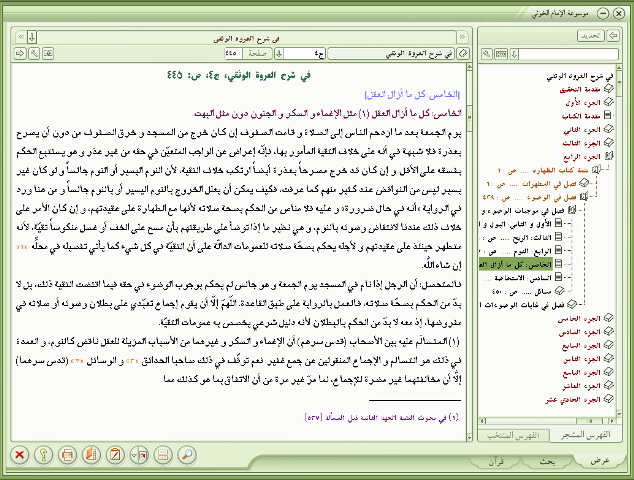 موسوعة الإمام الخوئي
تحديد
في شرح العروة الوثقى
في شرح العروة الوثقى
ج٤
صفحة
٤٤٥
في شرح العروة الوثقى، ج٤، ص: ٤٤٥
[الخامس: كل ما أزال العقل]
الخامس: كل ما أزال العقل (١) مثل الإغماء و السكر و الجنون دون مثل البهت.
يوم الجمعة بعد ما ازدحم الناس إلى الصلاة و قامت الصفوف إن كان خرج من المسجد و خرق الصفوف من دون أن يصرح
بعذره فلا شبهة في أنه على خلاف التقية المأمور بها، فإنّه إعراض عن الواجب المتعيّن في حقه من غير عذر و هو يستتبع الحكم
بفسقه على الأقل و إن كان قد خرج مصرحاً بعذره أيضاً ارتكب خلاف التقية، لأن النوم اليسير أو النوم جالساً و لو كان غير
يسير ليس من النواقض عند كثير منهم كما عرفت، فكيف يمكن أن يعلل الخروج بالنوم اليسير أو بالنوم جالساً و من هنا ورد
في الرواية «أنه في حال ضرورة» و عليه فلا مناص من الحكم بصحة صلاته لأنها مع الطهارة على عقيدتهم، و إن كان الأمر على
خلاف ذلك عندنا لانتقاض وضوئه بالنوم، و هي نظير ما إذا توضأ على طريقتهم بأن مسح على الخف أو غسل منكوساً تقيّة، لأنه
متطهر حينئذ على عقيدتهم و لأجله يحكم بصحّة صلاته للعمومات الدالّة على أن التقيّة في كل شيء كما يأتي تفصيله في محلّه
إن شاء اللّٰه.
فالمتحصل: أن الرجل إذا نام في المسجد يوم الجمعة و هو جالس لم يحكم بوجوب الوضوء في حقه فيما اقتضت التقية ذلك، بل لا
بدّ من الحكم بصحّة صلاته، فالعمل بالرواية على طبق القاعدة. اللّهمّ إلّا أن يقوم إجماع تعبّدي على بطلان وضوئه أو صلاته في
مفروضها، إذ معه لا بدّ من الحكم بالبطلان لأنه دليل شرعي يخصص به عمومات التقيّة.
(١) المتسالم عليه بين الأصحاب (قدس سرهم) أن الإغماء و السكر و غيرهما من الأسباب المزيلة للعقل ناقض كالنوم، و العمدة
في ذلك هو التسالم و الإجماع المنقولين عن جمع غفير. نعم توقّف في ذلك صاحبا الحدائق و الوسائل (قدس سرهما)
إلّا أن مخالفتهما غير مضرة للإجماع، لما مرّ غير مرة من أن الاتفاق بما هو كذلك مما
في شرح العروة الوثقى
مقدمة التحقيق
الجزء الأول
مقدمة الكتاب
الجزء الثاني
الجزء الثالث
الجزء الرابع
تتمة كتاب الطهارة
فصل في المطهرات
فصل في الوضوء
فصل في موجبات الوضوء و
الأول و الثاني: البول و
الثالث: الريح
الرابع: النوم
الخامس: كل ما أزال
السادس: الاستحاضة
مسائل
فصل في غايات الوضوءات
الجزء الخامس
الجزء السادس
الجزء السابع
الجزء الثامن
الجزء التاسع
الجزء العاشر
الجزء الحادي عشر
الفهرس المشجر
الفهرس المنتخب
عرض
بحث
قرآن